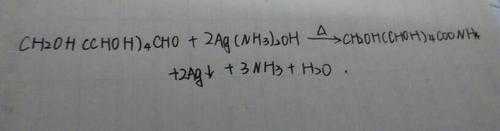 CH2OH(CHOH)4CHO + 2Ag(NH3)2OH —Δ→ CH2OH(CHOH)4COONH4
+2Ag↓ + 3NH3 + H2O .